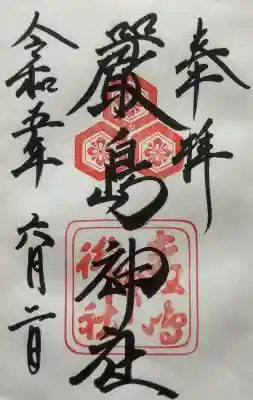 奉拝
嚴島神社
令和五年
六月二日